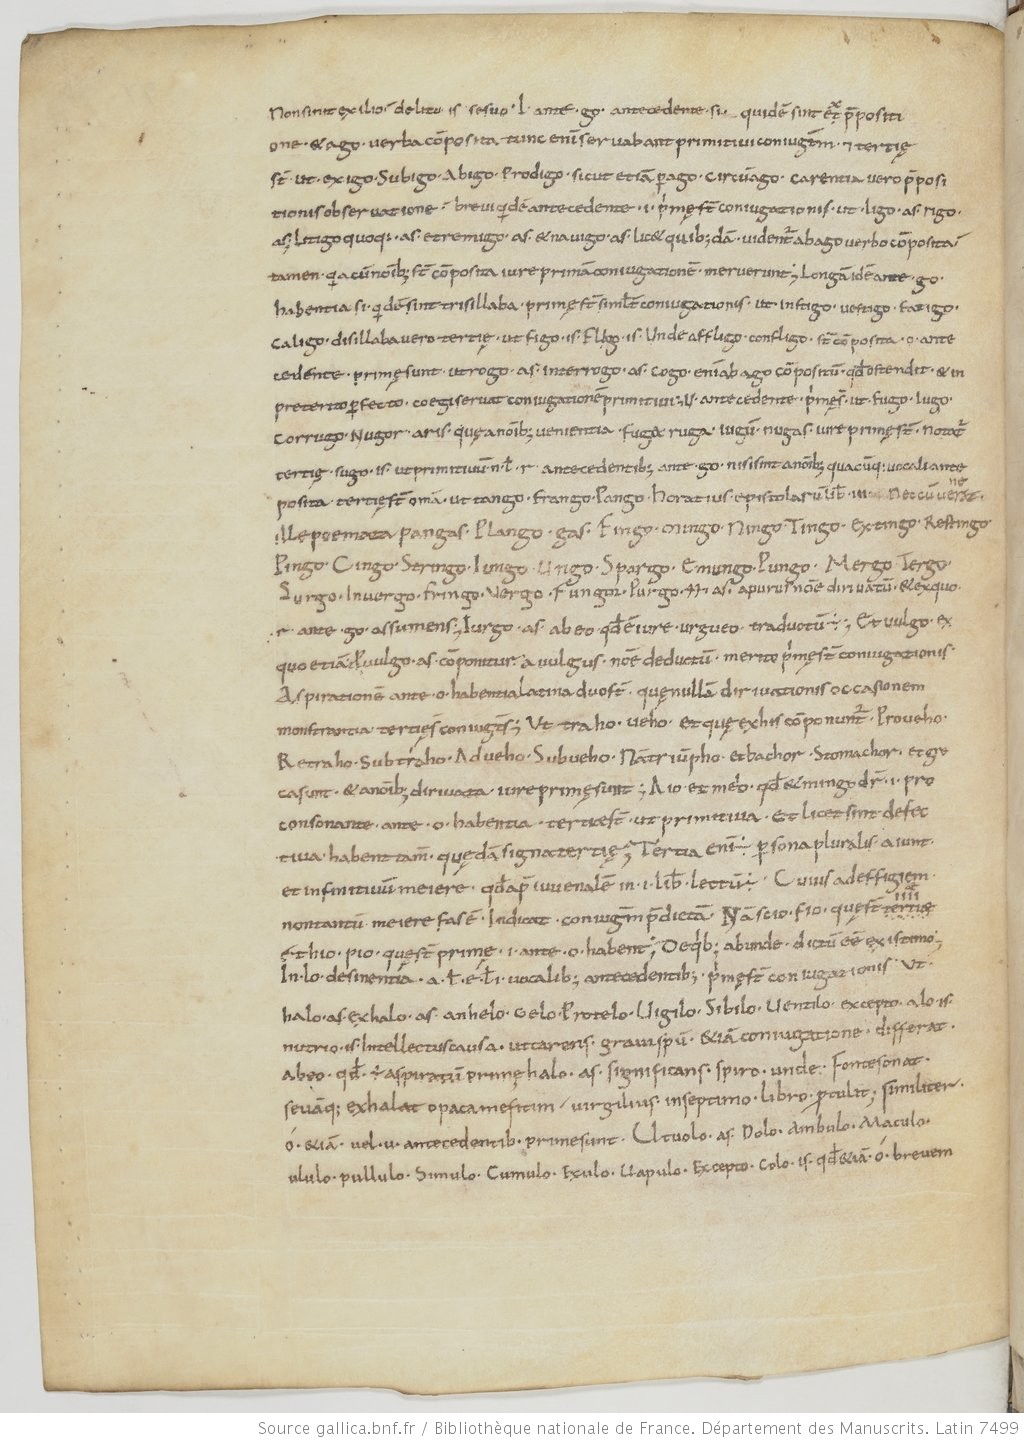 Non sint ex ilio · delitu · is · sesuo · l · ante · go · antecedente · si · quidē sint p̄positi
one · & ago · verba cōposita tunc enī servabant primitivi coniugt̄m · ⁊ tertię
st̄ · ut · exigo · Subigo · Abigo · Prodigo · sicut etiā pago · Circūago · carentia vero p̄posi
tionis observatione · brevi qidē antecedente · i · p̄mę st̄ coniugationis · ut · ligo · as · rigo ·
as; Litigo quoq; · as · et remigo · as · & navigo · as · lic& quib;dā · vident̄ ab ago verbo cōposita
tamen · qia cū noīb; st̄ cōposita iure primā coniugationē · meruerunt; Longā idē ante · go ·
habentia si · qidē sint trisillaba · primę st̄ simlt̄ coniugationis · ut · instigo · vestigo · fatigo ·
caligo · disillaba vero tertię · ut figo · is · Fligo · is · Unde affligo · confligo · st̄ cōposita · o · ante
cedente · primę sunt · ut rogo · as · interrogo · as · cogo · enī ab ago cōpositū · qđ ostendit · & in
preterito pfecto · coegi servat coniugationē primitivi; U · antecedente · p̄mę st̄ · ut · fugo · lugo ·
Corrugo · Nugor · aris · quę a noīb; venientia · fuga & ruga · iugū · nugas · iure primę st̄ · notat̄
tertię · sugo · is · ut primitivum · n · ł · r · antecedentib; ante · go · nisi sint a noīb; quacūq; vocali ante
posita · tertię st̄ omā · ut tango · frango · Pango · horatius · epistolarū lib̄ · III · Nec cū venerit ·
ille poemata pangas · Plango · gas · Fingo · mingo · Ningo · Tingo · extingo · Restingo
Pingo · Cingo · Seringo · Iungo · Ungo · Spargo · Emungo · Pungo · Mergo · Tergo ·
Surgo · Invergo · fringo · Vergo · Fungor · Purgo · as · a purus noē dirivatū · & ex quo ·
r · ante · go · assumens; Iurgo · as · ab eo qđ ē iure · urgueo · traductū; Et vulgo · ex
quo etiā divulgo · as · cōponitur a vulgus · noē deductū · merito p̄mę st̄ coniugationis ·
Aspirationē ante · o · habentia latina duo st̄ · quę nullā dirivationis occasionem
monstrantia tertię st̄ coniugt̄s; Ut traho · veho · et quę ex his cōponunt̄ · Proveho ·
Retraho · Subtraho · Adveho · Subveho · Nā triūpho · et bachor · Stomachor · et gre
ca sunt · & a noīb; dirivata · iure primę sunt; Aio et meio · qđ & mingo dr̄ · i · pro
consonante · ante · o · habentia · tertię st̄ · ut primitiva · Et licet sint defec
tiva · habent tam̄ · quędā signa tertię; Tertia enī · psona pluralis aiunt ·
et infinitivū meiere · qđ ap̄ iuvenalē in · i · lib̄ · lectū · Cuius ad effigiem ·
non tantū meiere fas ē · Indicat · coniugt̄m p̄dictā · Nā scio · fio · quę st̄ tertię
& hio · pio · quę st̄ primę · i · ante · o · habent; De qib; abunde · dictū eē existimo;
In · lo · desinentia · a · ł · e · ł · i · vocalib; antecedentib; p̄mę st̄ coniugationis · Ut ·
halo · as · exhalo · as · anhelo · Gelo · Protelo · Vigilo · Sibilo · Ventilo · excepto · alo · is ·
nutrio · is · Intellectus causa · ut carens · gravi spū · & iā coniugatione · differat ·
ab eo · qđ · aspiratū primę halo · as · significans · spiro · unde · Fonte sonat ·
sevāq; exhalat opaca mefitim · virgilius · in septimo · libro · ptulit; similiter ·
ó · & iā · vel · u · antecedentib · primę sunt · Ut volo · as · Dolo · Ambulo · Maculo ·
ululo · pullulo · Simulo · Cumulo · Exulo · Vapulo · Excepto · colo · is · qđ & iā · ó · brevem
Source gallica.bnf.fr / Bibliothèque nationale de France. Département des Manuscrits. Latin 7499